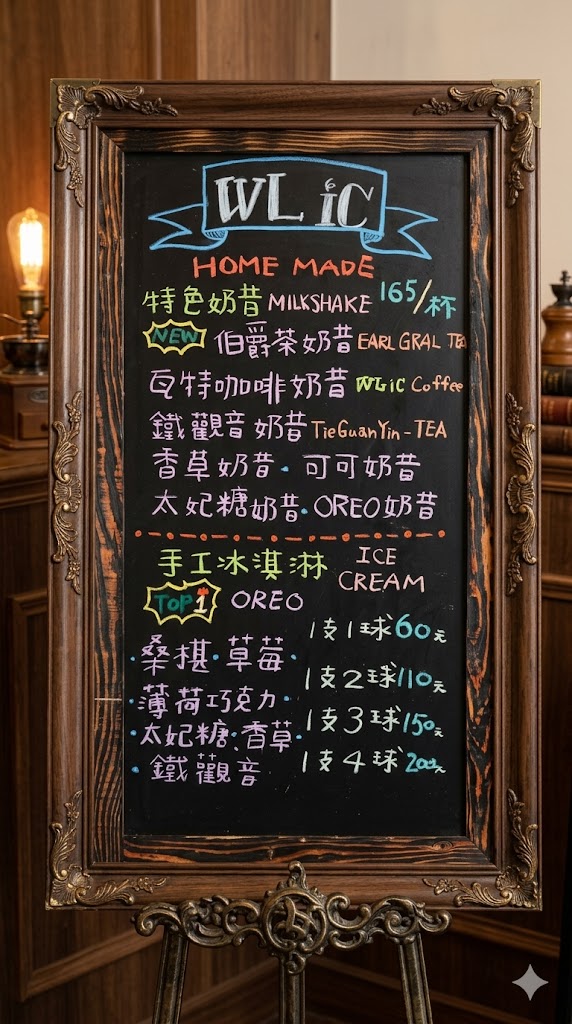 WLiC
HOME MADE
特色奶昔 MILKSHAKE 165/杯
NEW 伯爵茶奶昔 EARL GRAL TEA
瓦特咖啡奶昔 WLiC Coffee
鐵觀音奶昔 TieGuanYin-TEA
香草奶昔·可可奶昔
太妃糖奶昔·OREO奶昔
手工冰淇淋 ICE CREAM
TOP 1 OREO
1支1球60元
·桑椹·草莓·
1支2球110元
·薄荷巧克力·
1支3球150元
·太妃糖·香草·
1支4球200元
·鐵觀音